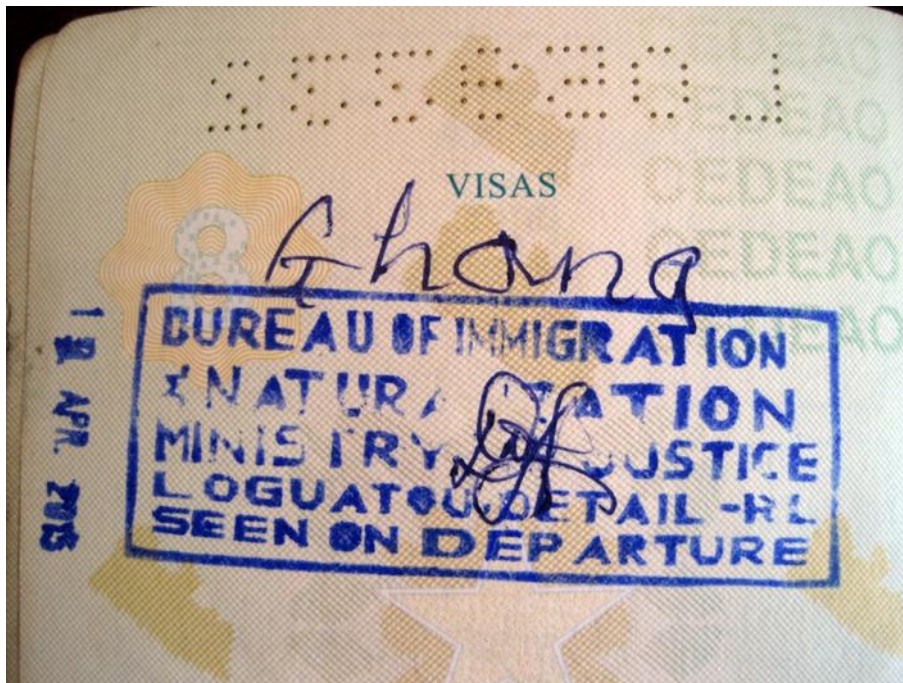 VISAS
CEDEAO
CEDEAO
CEDEAO
CEDEAO
CEDEAO
8
Ghana
BUREAU OF IMMIGRATION
& NATURALIZATION
MINISTRY OF JUSTICE
LOGUATOU DETAIL -RL
SEEN ON DEPARTURE
APR. 2013